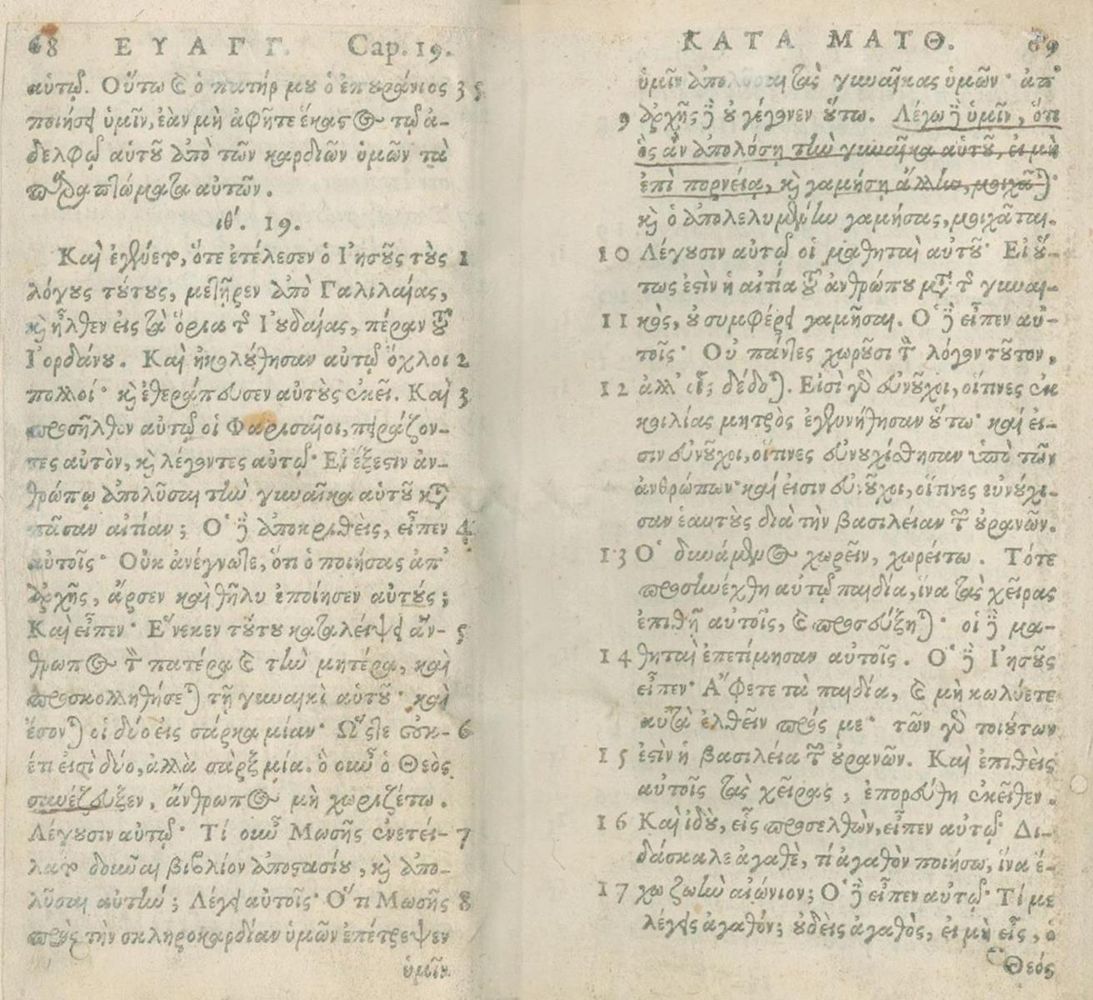 68 ΕΥΑΓΓ. Cap. 19.
αὐτῷ. Οὕτω ϗ ὁ πατήρ μου ὁ ἐπουράνιος 35
ποιήσει ὑμῖν, ἐὰν μὴ ἀφῆτε ἕκαστος τῷ ἀ-
δελφῷ αὑτοῦ ἀπὸ τῶν καρδιῶν ὑμῶν τὰ
παραπτώματα αὐτῶν.
ιθ'. 19.
Καὶ ἐγένετο, ὅτε ἐτέλεσεν ὁ Ἰησοῦς τοὺς 1
λόγους τούτους, μετῆρεν ἀπὸ Γαλιλαίας,
ϗ ἦλθεν εἰς τὰ ὅρια τῆς Ἰουδαίας, πέραν τοῦ
Ἰορδάνου. Καὶ ἠκολούθησαν αὐτῷ ὄχλοι 2
πολλοί· ϗ ἐθεράπευσεν αὐτοὺς ἐκεῖ. Καὶ 3
προσῆλθον αὐτῷ οἱ Φαρισαῖοι, πειράζον-
τες αὐτὸν, ϗ λέγοντες αὐτῷ· Εἰ ἔξεστιν ἀν-
θρώπῳ ἀπολῦσαι τὴν γυναῖκα αὑτοῦ κατὰ
πᾶσαν αἰτίαν; Ὁ δὲ ἀποκριθεὶς, εἶπεν 4
αὐτοῖς· Οὐκ ἀνέγνωτε, ὅτι ὁ ποιήσας ἀπ'
ἀρχῆς, ἄρσεν καὶ θῆλυ ἐποίησεν αὐτούς;
Καὶ εἶπεν· Ἕνεκεν τούτου καταλείψει ἄν- 5
θρωπος τὸν πατέρα ϗ τὴν μητέρα, καὶ
προσκολληθήσεται τῇ γυναικὶ αὑτοῦ· καὶ
ἔσονται οἱ δύο εἰς σάρκα μίαν· Ὥστε οὐκ- 6
έτι εἰσὶ δύο, ἀλλὰ σὰρξ μία. ὃ οὖν ὁ Θεὸς
συνέζευξεν, ἄνθρωπος μὴ χωριζέτω.
Λέγουσιν αὐτῷ· Τί οὖν Μωσῆς ἐνετεί- 7
λατο δοῦναι βιβλίον ἀποστασίου, ϗ ἀπο-
λῦσαι αὐτήν; Λέγει αὐτοῖς· Ὅτι Μωσῆς 8
πρὸς τὴν σκληροκαρδίαν ὑμῶν ἐπέτρεψεν
ὑμῖν
ΚΑΤΑ ΜΑΤΘ. 69
ὑμῖν ἀπολῦσαι τὰς γυναῖκας ὑμῶν· ἀπ'
9 ἀρχῆς δὲ οὐ γέγονεν οὕτω. Λέγω δὲ ὑμῖν, ὅτι
ὃς ἂν ἀπολύσῃ τὴν γυναῖκα αὑτοῦ, εἰ μὴ
ἐπὶ πορνείᾳ, ϗ γαμήσῃ ἄλλην, μοιχᾶται·
ϗ ὁ ἀπολελυμένην γαμήσας, μοιχᾶται.
10 Λέγουσιν αὐτῷ οἱ μαθηταὶ αὐτοῦ· Εἰ οὕ-
τως ἐστὶν ἡ αἰτία τοῦ ἀνθρώπου μετὰ τῆς γυναι-
11 κὸς, οὐ συμφέρει γαμῆσαι. Ὁ δὲ εἶπεν αὐ-
τοῖς· Οὐ πάντες χωροῦσι τὸν λόγον τοῦτον,
12 ἀλλ' οἷς δέδοται. Εἰσὶ γὰρ εὐνοῦχοι, οἵτινες ἐκ
κοιλίας μητρὸς ἐγεννήθησαν οὕτω· καί εἰ-
σιν εὐνοῦχοι, οἵτινες εὐνουχίσθησαν ὑπὸ τῶν
ἀνθρώπων· καί εἰσιν εὐνοῦχοι, οἵτινες εὐνούχι-
σαν ἑαυτοὺς διὰ τὴν βασιλείαν τῶν οὐρανῶν.
13 Ὁ δυνάμενος χωρεῖν, χωρείτω. Τότε
προσηνέχθη αὐτῷ παιδία, ἵνα τὰς χεῖρας
ἐπιθῇ αὐτοῖς, ϗ προσεύξηται· οἱ δὲ μα-
14 θηταὶ ἐπετίμησαν αὐτοῖς. Ὁ δὲ Ἰησοῦς
εἶπεν· Ἄφετε τὰ παιδία, ϗ μὴ κωλύετε
αὐτὰ ἐλθεῖν πρός με· τῶν γὰρ τοιούτων
15 ἐστὶν ἡ βασιλεία τῶν οὐρανῶν. Καὶ ἐπιθεὶς
αὐτοῖς τὰς χεῖρας, ἐπορεύθη ἐκεῖθεν.
16 Καὶ ἰδοὺ, εἷς προσελθὼν, εἶπεν αὐτῷ· Δι-
δάσκαλε ἀγαθὲ, τί ἀγαθὸν ποιήσω, ἵνα ἔ-
17 χω ζωὴν αἰώνιον; Ὁ δὲ εἶπεν αὐτῷ· Τί με
λέγεις ἀγαθόν; οὐδεὶς ἀγαθὸς, εἰ μὴ εἷς, ὁ
Θεός